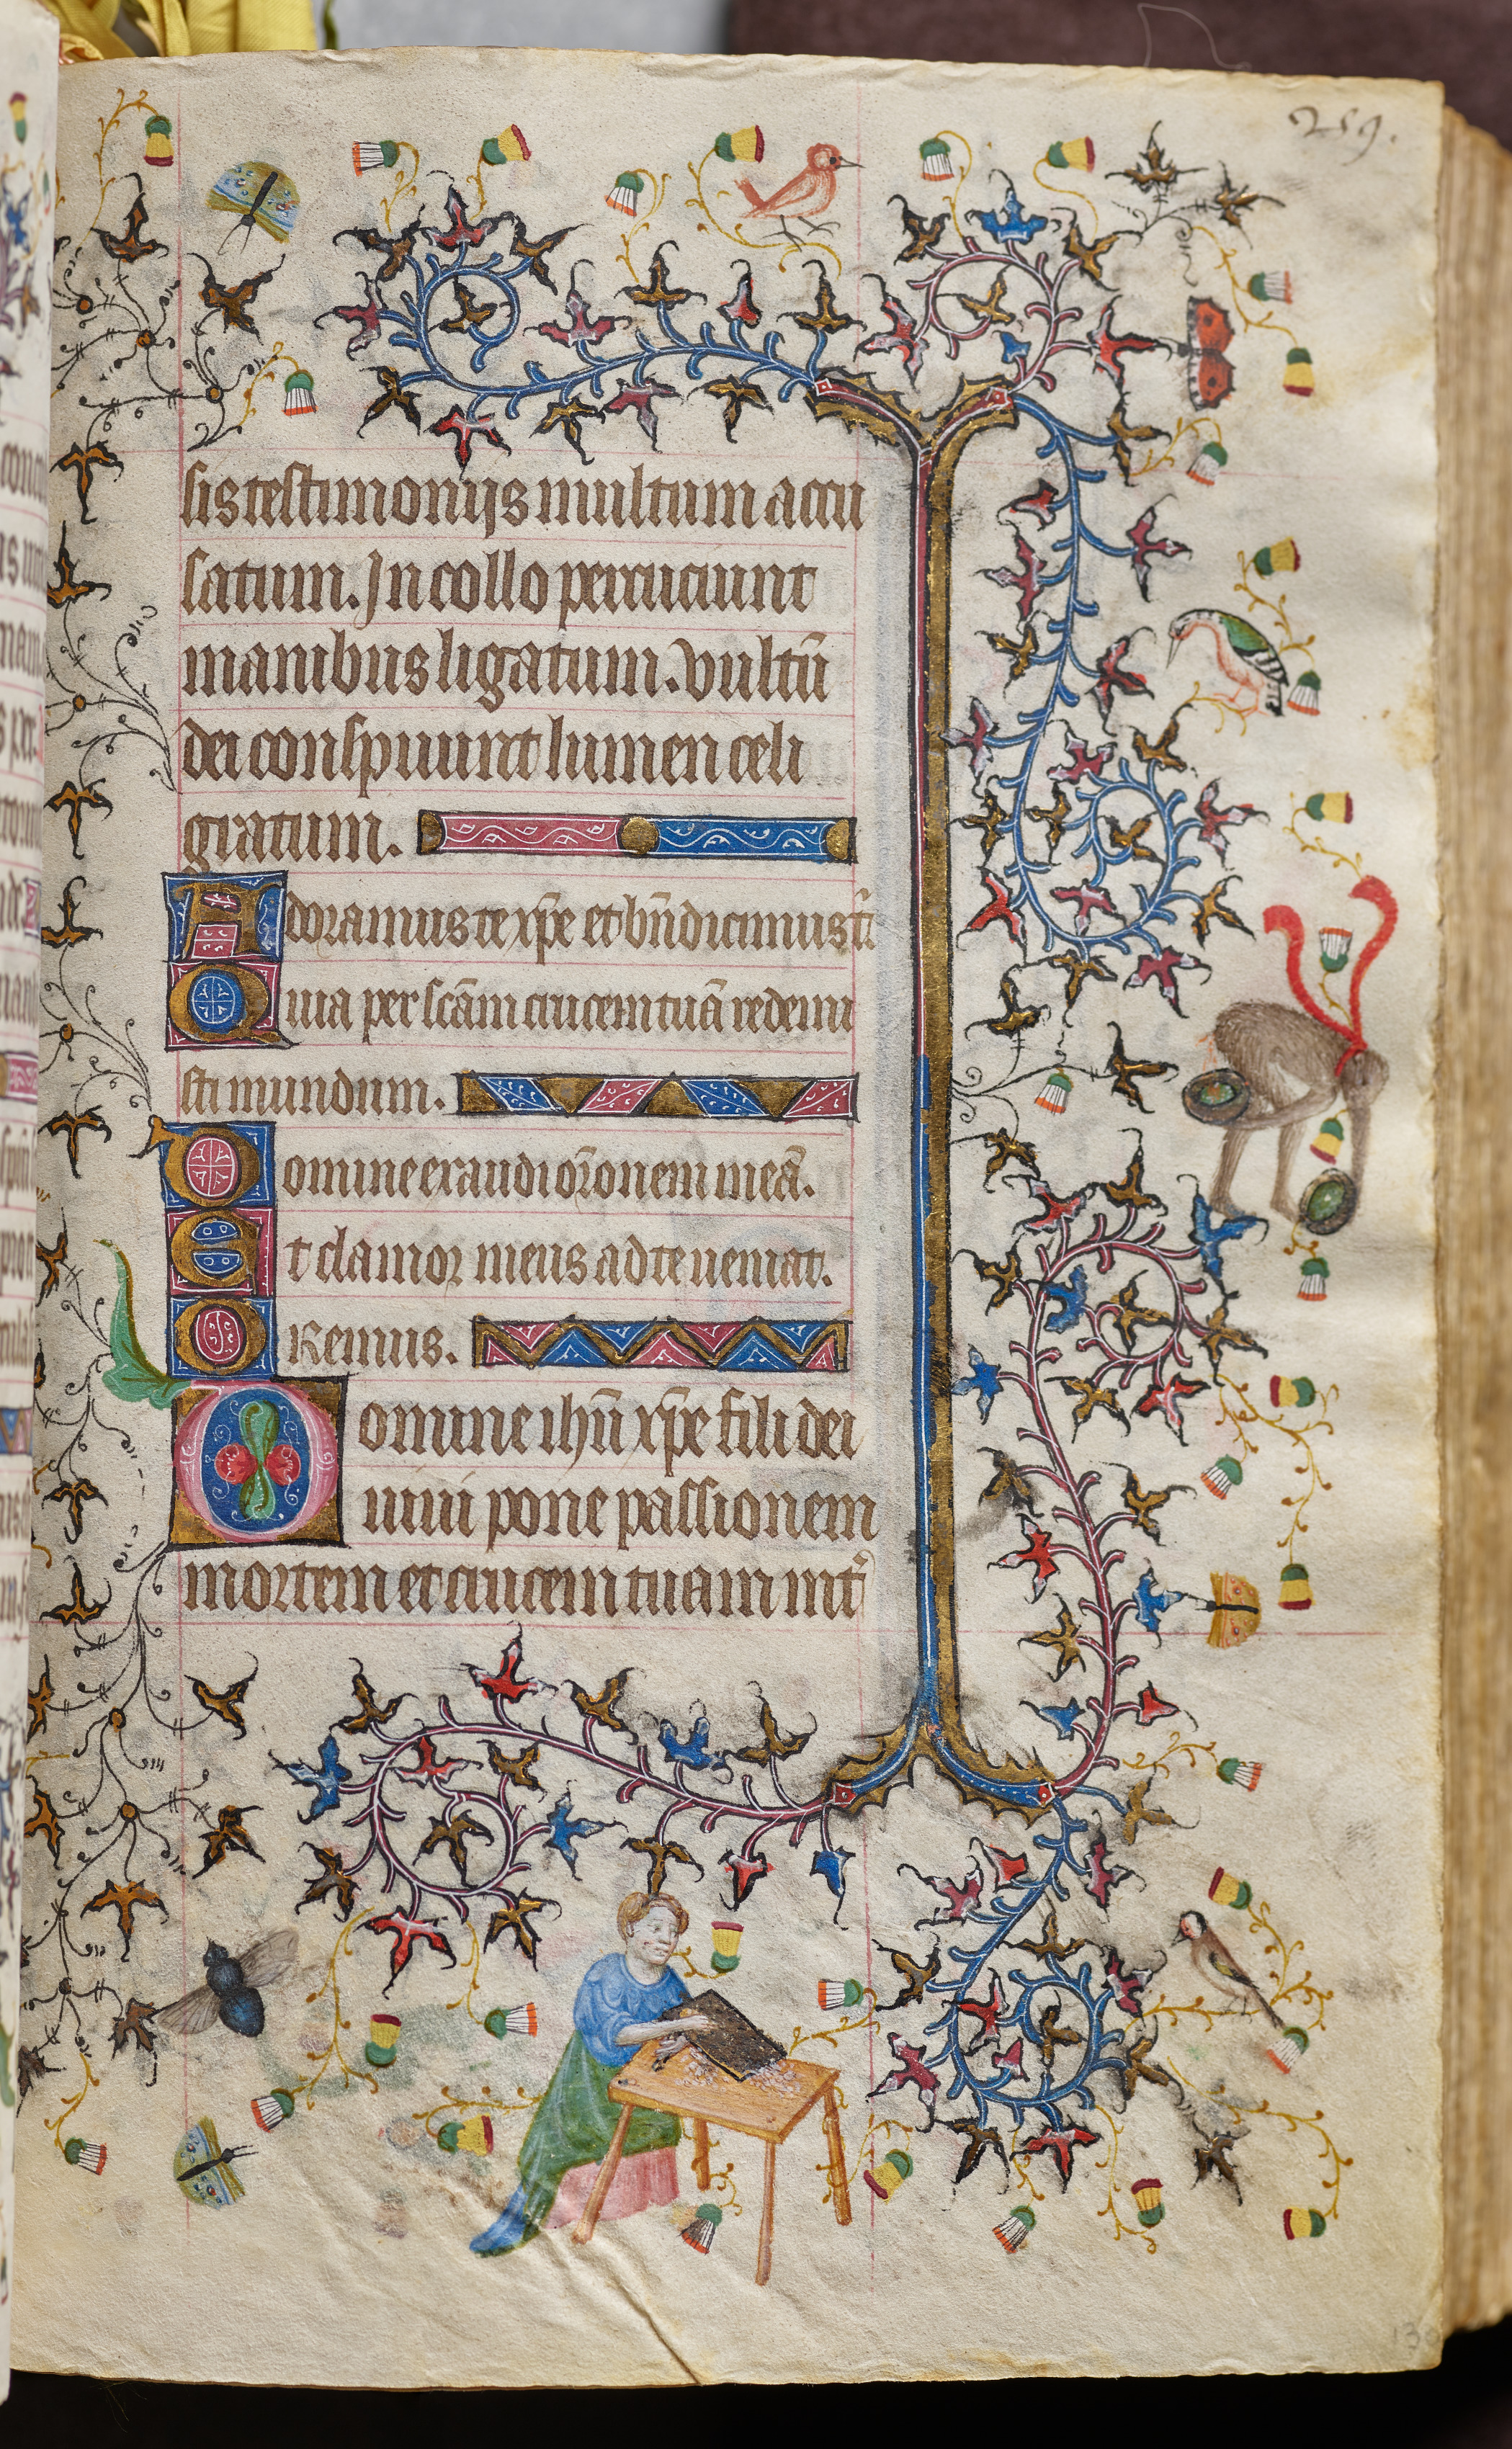 259.
sis testimonijs multum accu
satum. In collo percuciunt
manibus ligatum. vultū
dei conspuunt lumen celi
gratum.
Adoramus te xp̄e et bn̄dicimus t̄.
Quia per scām crucem tuā redemi
sti mundum.
Domine exaudi or̄onem meā.
Et clamor meus ad te ueniat.
Oremus.
Domine ihū xp̄e fili dei
uiui pone passionem
mortem et crucem tuam int̄